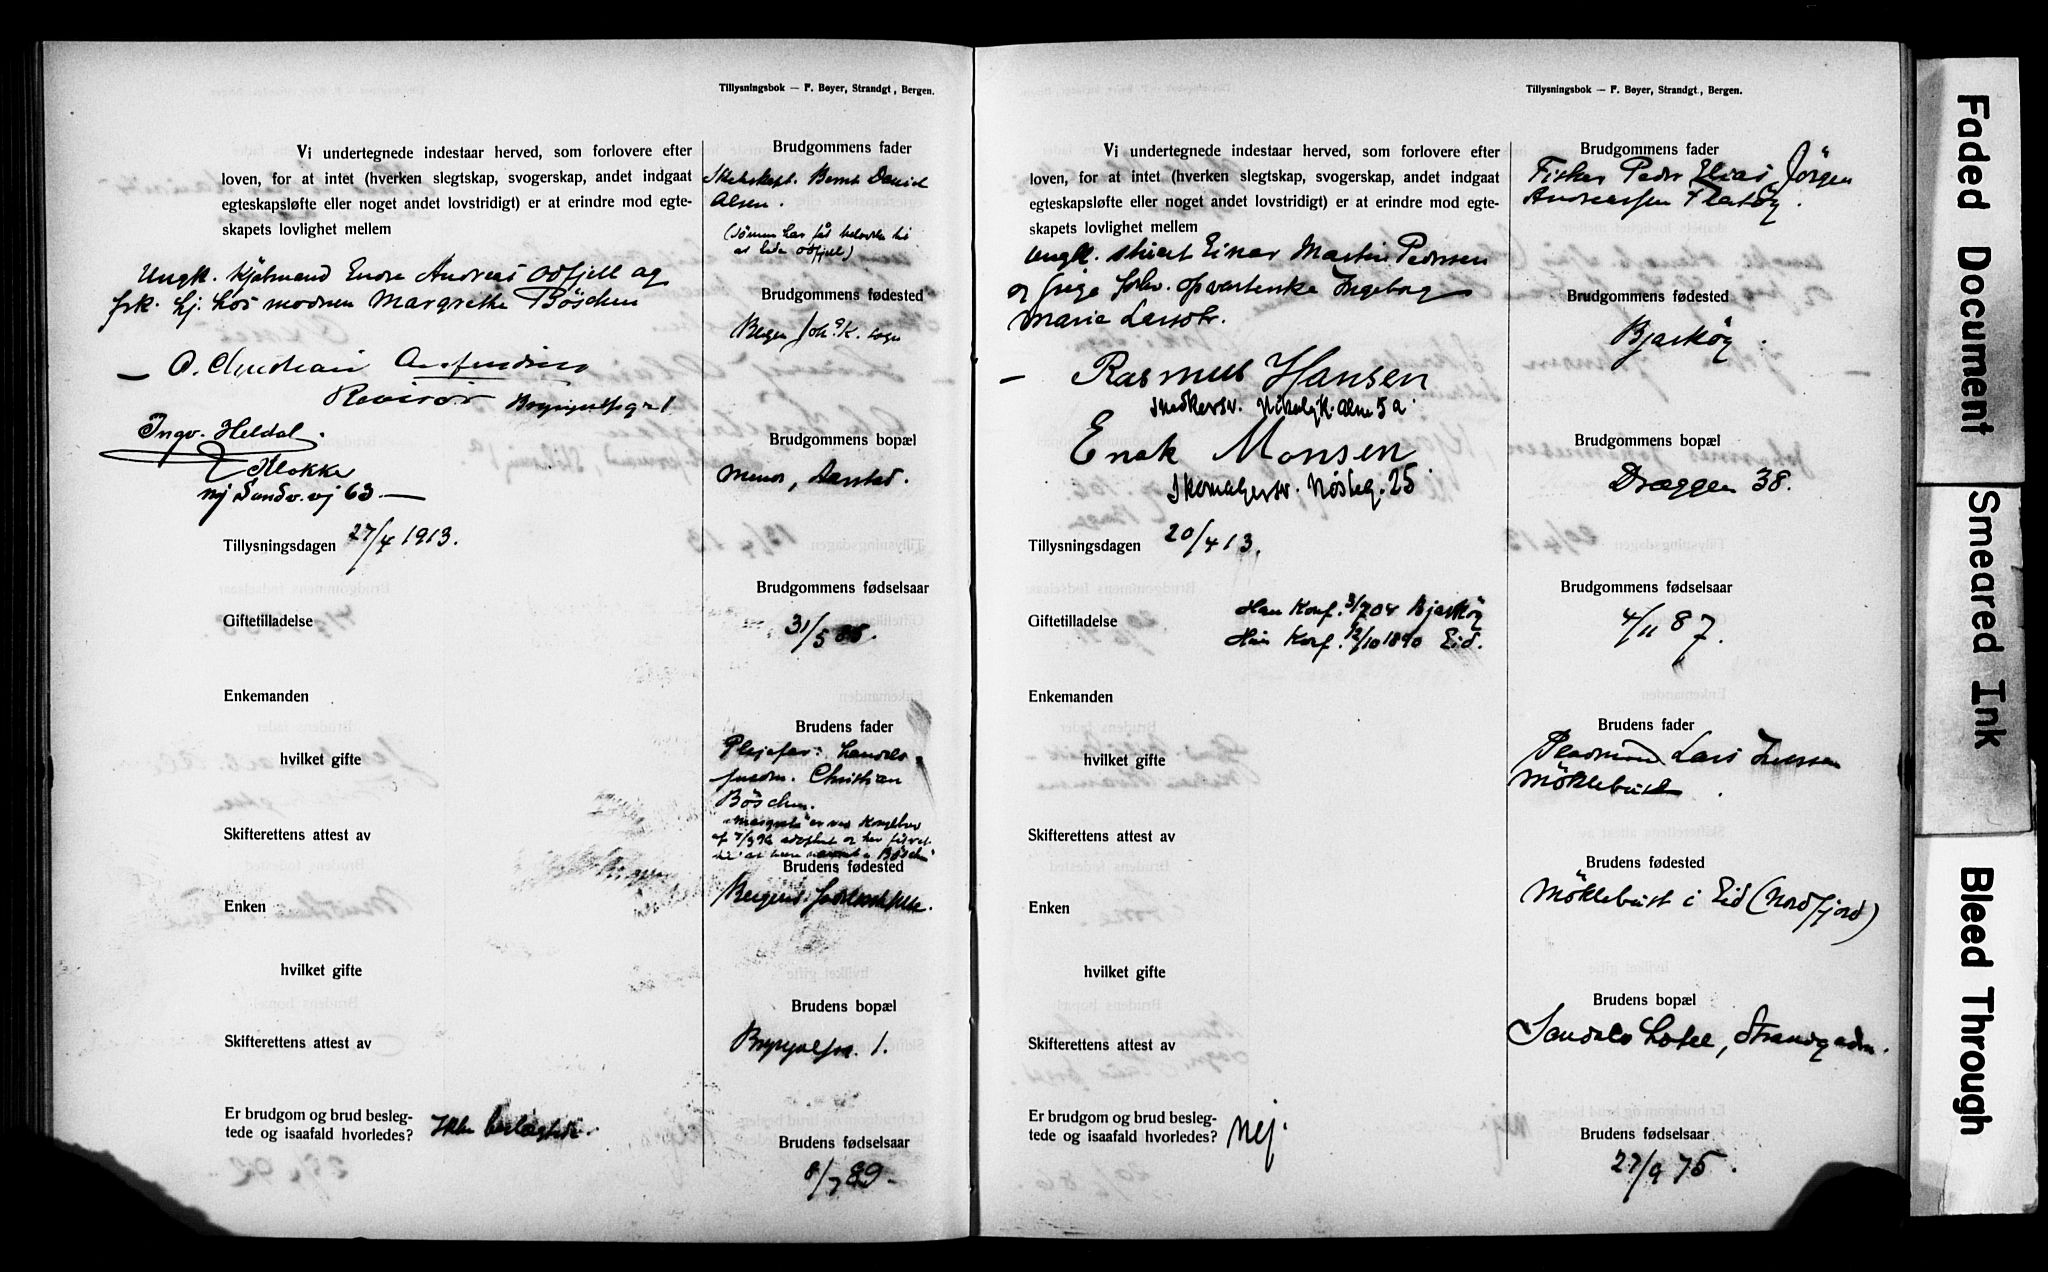 Tillysningsbok — F. Beyer, Strandgt., Bergen.
Vi undertegnede indestaar herved, som forlovere efter
loven, for at intet (hverken slegtskap, svogerskap, andet indgaat
egteskapsløfte eller noget andet lovstridigt) er at erindre mod egte-
skapets lovlighet mellem
Ungk. Kjølmand Endre Andreas Odfjell og
frk. hj. hos modren Margrethe Böschen
O. Christian
Revisor
Ingv. Heldal.
Klokker
nj Sandv. vj 63
Tillysningsdagen 27/4 1913.
Giftetilladelse
Enkemanden
hvilket gifte
Skifterettens attest av
Enken
hvilket gifte
Skifterettens attest av
Er brudgom og brud besleg-
tede og isaafald hvorledes? Ikke beslegtede.
Brudgommens fader
Bernt Daniel
Olsen.
Brudgommens fødested
Bergen Joh. K. sogn
Brudgommens bopæl
Minde, Aarstad.
Brudgommens fødselsaar
31/5 88.
Brudens fader
Plejefar: Handels
fuldm. Christian
Böschen.
Brudens fødested
Bergen
Brudens bopæl
1.
Brudens fødselsaar
8/7 89.
Tillysningsbok — F. Beyer, Strandgt., Bergen.
Vi undertegnede indestaar herved, som forlovere efter
loven, for at intet (hverken slegtskap, svogerskap, andet indgaat
egteskapsløfte eller noget andet lovstridigt) er at erindre mod egte-
skapets lovlighet mellem
Ungk. stuert Einar Martin Pedersen
og pige forhv. opvarterske Ingeborg
Marie Larsdtr.
Rasmus Hansen
Snedkersv. Nikolajk. alm 5a
Enok Monsen
Skomagersv. Nøsteg. 25
Tillysningsdagen 20/4 13.
Giftetilladelse
Han Konf. 3/7 04 Bjarköy
Hun Konf. 12/10 1890 Eid.
Enkemanden
hvilket gifte
Skifterettens attest av
Enken
hvilket gifte
Skifterettens attest av
Er brudgom og brud besleg-
tede og isaafald hvorledes? Nej.
Brudgommens fader
Fisker Peder Elias Jörgen
Andreassen Flatöy.
Brudgommens fødested
Bjarköy.
Brudgommens bopæl
Dræggen 38.
Brudgommens fødselsaar
4/11 87.
Brudens fader
Pladsmand Lars Iversen
Möklebust.
Brudens fødested
Möklebust i Eid (Nordfjord)
Brudens bopæl
Sandals hotel, Strandgaden.
Brudens fødselsaar
27/9 75.
Faded Document
Smeared Ink
Bleed Through